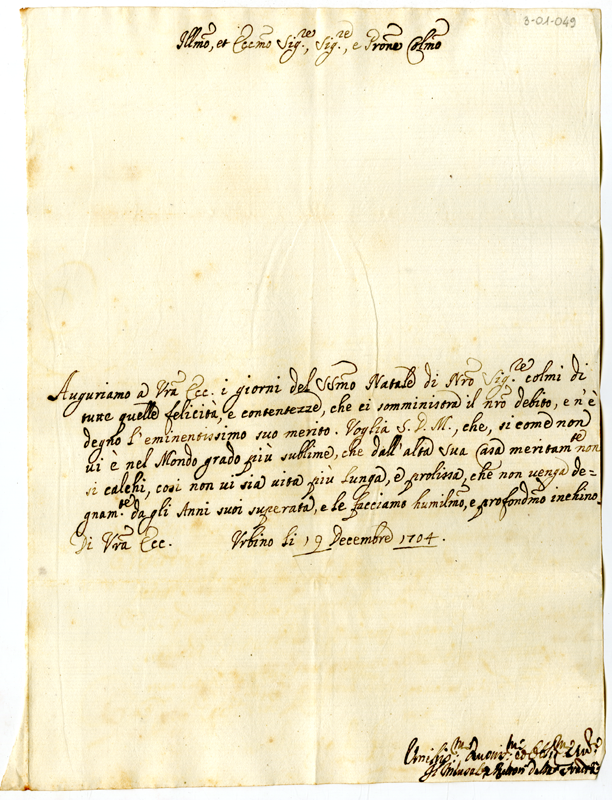 3-01-049
Illmo, et Eccmo Sig.re, Sig.re, e Prone Colmo
Auguriamo a Vra Ecc. i giorni del SSmo Natale di Nro Sig.re colmi di
tutte quelle felicità, e contentezze, che ci somministra il nro debito, e n'è
degno l'eminentissimo suo merito. Voglia S. D. M., che, si come non
vi è nel Mondo grado più sublime, che dall'alta sua Casa meritam.te non
si calchi, così non vi sia vita più lunga, e prolissa, che non venga de=
gnam.te dagli Anni suoi superata, e le facciamo humilmo, e profondmo inchino.
Di Vra Ecc. Urbino li 19 Decembre 1704.